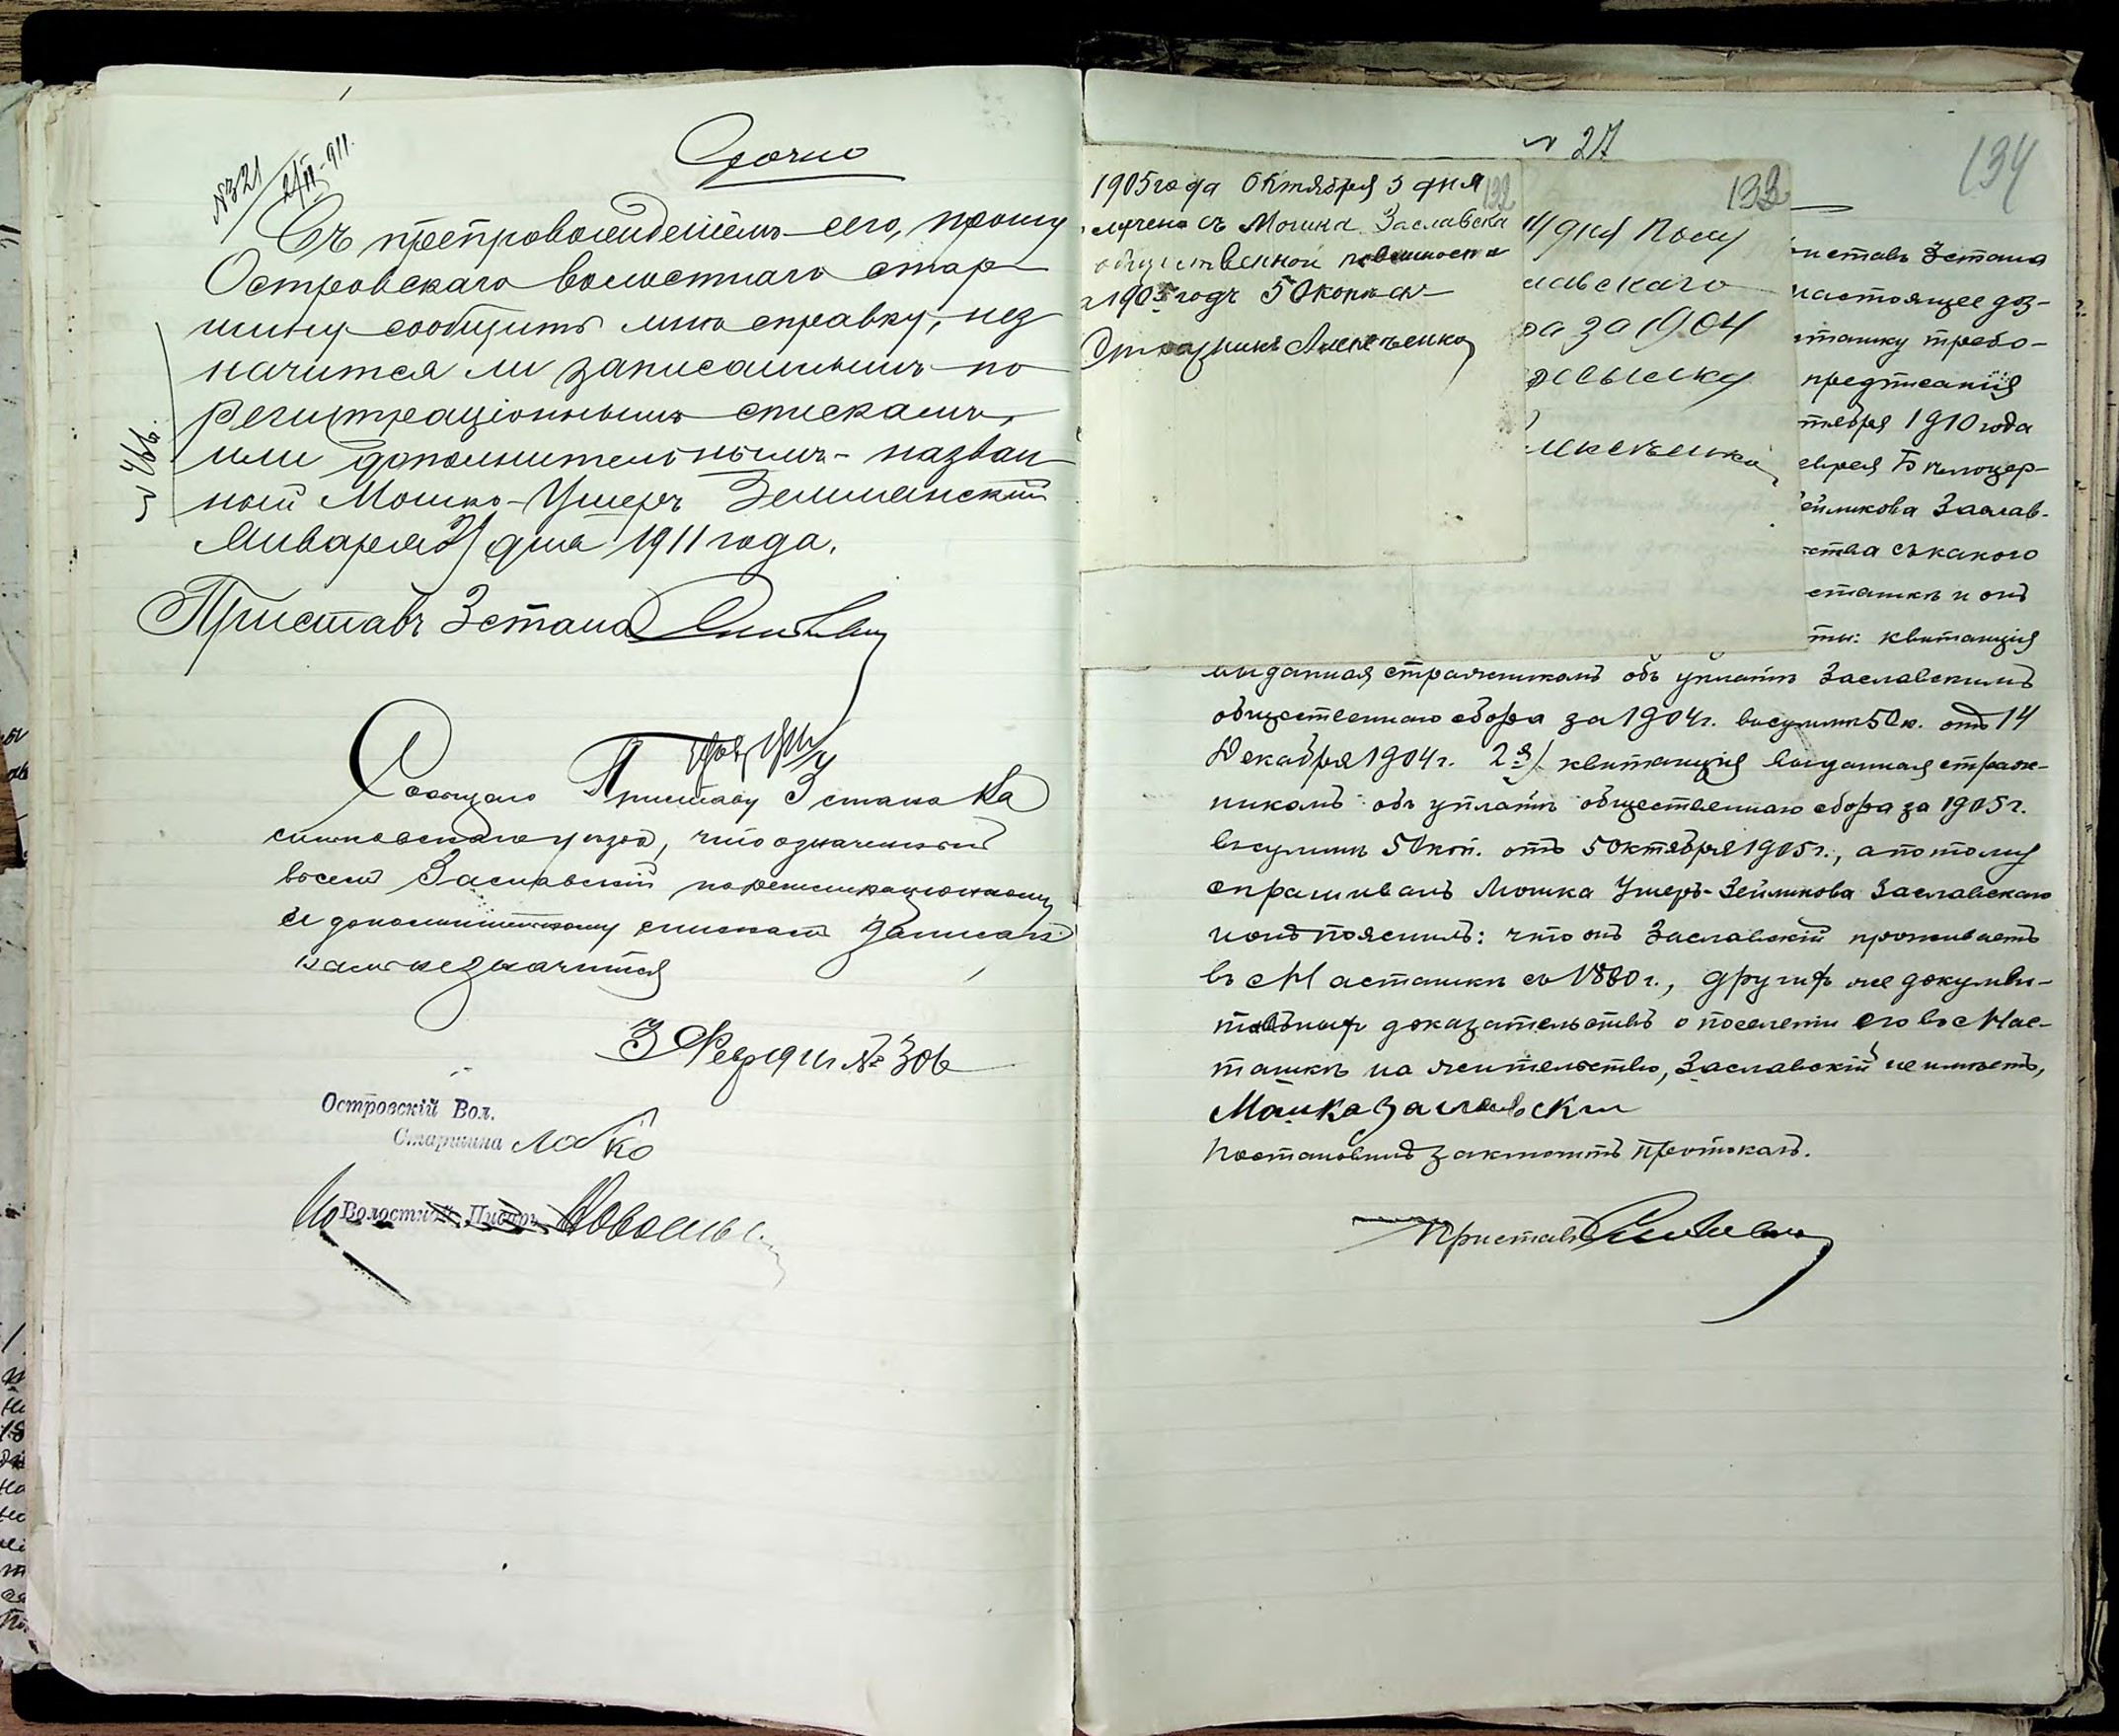 №321
2/II-911.
Срочно
Съ препровожденіемъ сего, прошу
Островскаго волостнаго стар-
шину сообщить мнѣ справку, нез
начится ли записаннымъ по
регистраціоннымъ спискамъ,
или дополнительнымъ назван
ный Мошко-Ушеръ
Января 31 дня 1911 года.
Приставъ 3 стана
Сообщаю Приставу 3 стана Ва
сильковскаго уѣзда, что означенный
восемъ Заславскій
и дополнительному спискамъ записан
нымъ незначится
3 Февр 1911 № 306
Островскій Вол.
Старшина
Волостной Писарь
1905 года Октября 5 дня
132
съ Мошка Заславска
общественной повинности
1905 годъ 50 копѣекъ
Стражникъ
133
дня
лавскаго
за 1904
№ 27
134
приставъ 3 стана
настоящее доз-
сташку требо-
предписанія
октября 1910 года
еврея Бѣлоцер-
Зейликова Заслав-
ства съ какого
сташкѣ и онъ
ты: квитанція
выданная стражникомъ объ уплатѣ Заславскимъ
общественнаго сбора за 1904г. въ суммѣ 50к. отъ 14
Декабря 1904г. 2я) квитанція выданная страж-
никомъ объ уплатѣ общественнаго сбора за 1905г.
въ суммѣ 50 коп. отъ 5 октября 1905г., а потому
спрашивалъ Мошка Ушеръ-Зейликова Заславскаго
и онъ пояснилъ: что онъ Заславскій проживаетъ
въ с Масташкѣ съ 1880г., другихъ же докумен-
тальныхъ доказательствъ о поселеніи его въ с Мас-
ташкѣ на жительство, Заславскій не имѣетъ,
Мошка Заславски
Постановилъ заключить протоколъ.
Приставъ